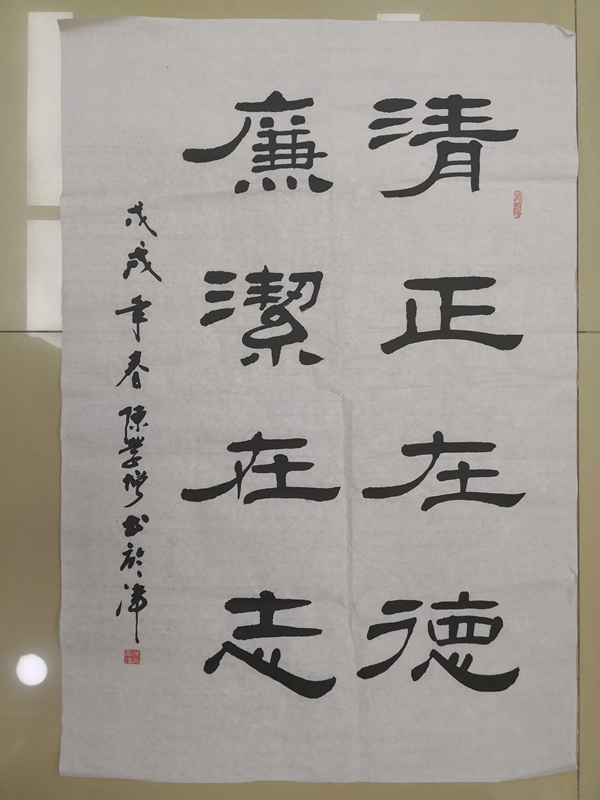 清正在德
廉潔在志
戊戌年春陳學书於津